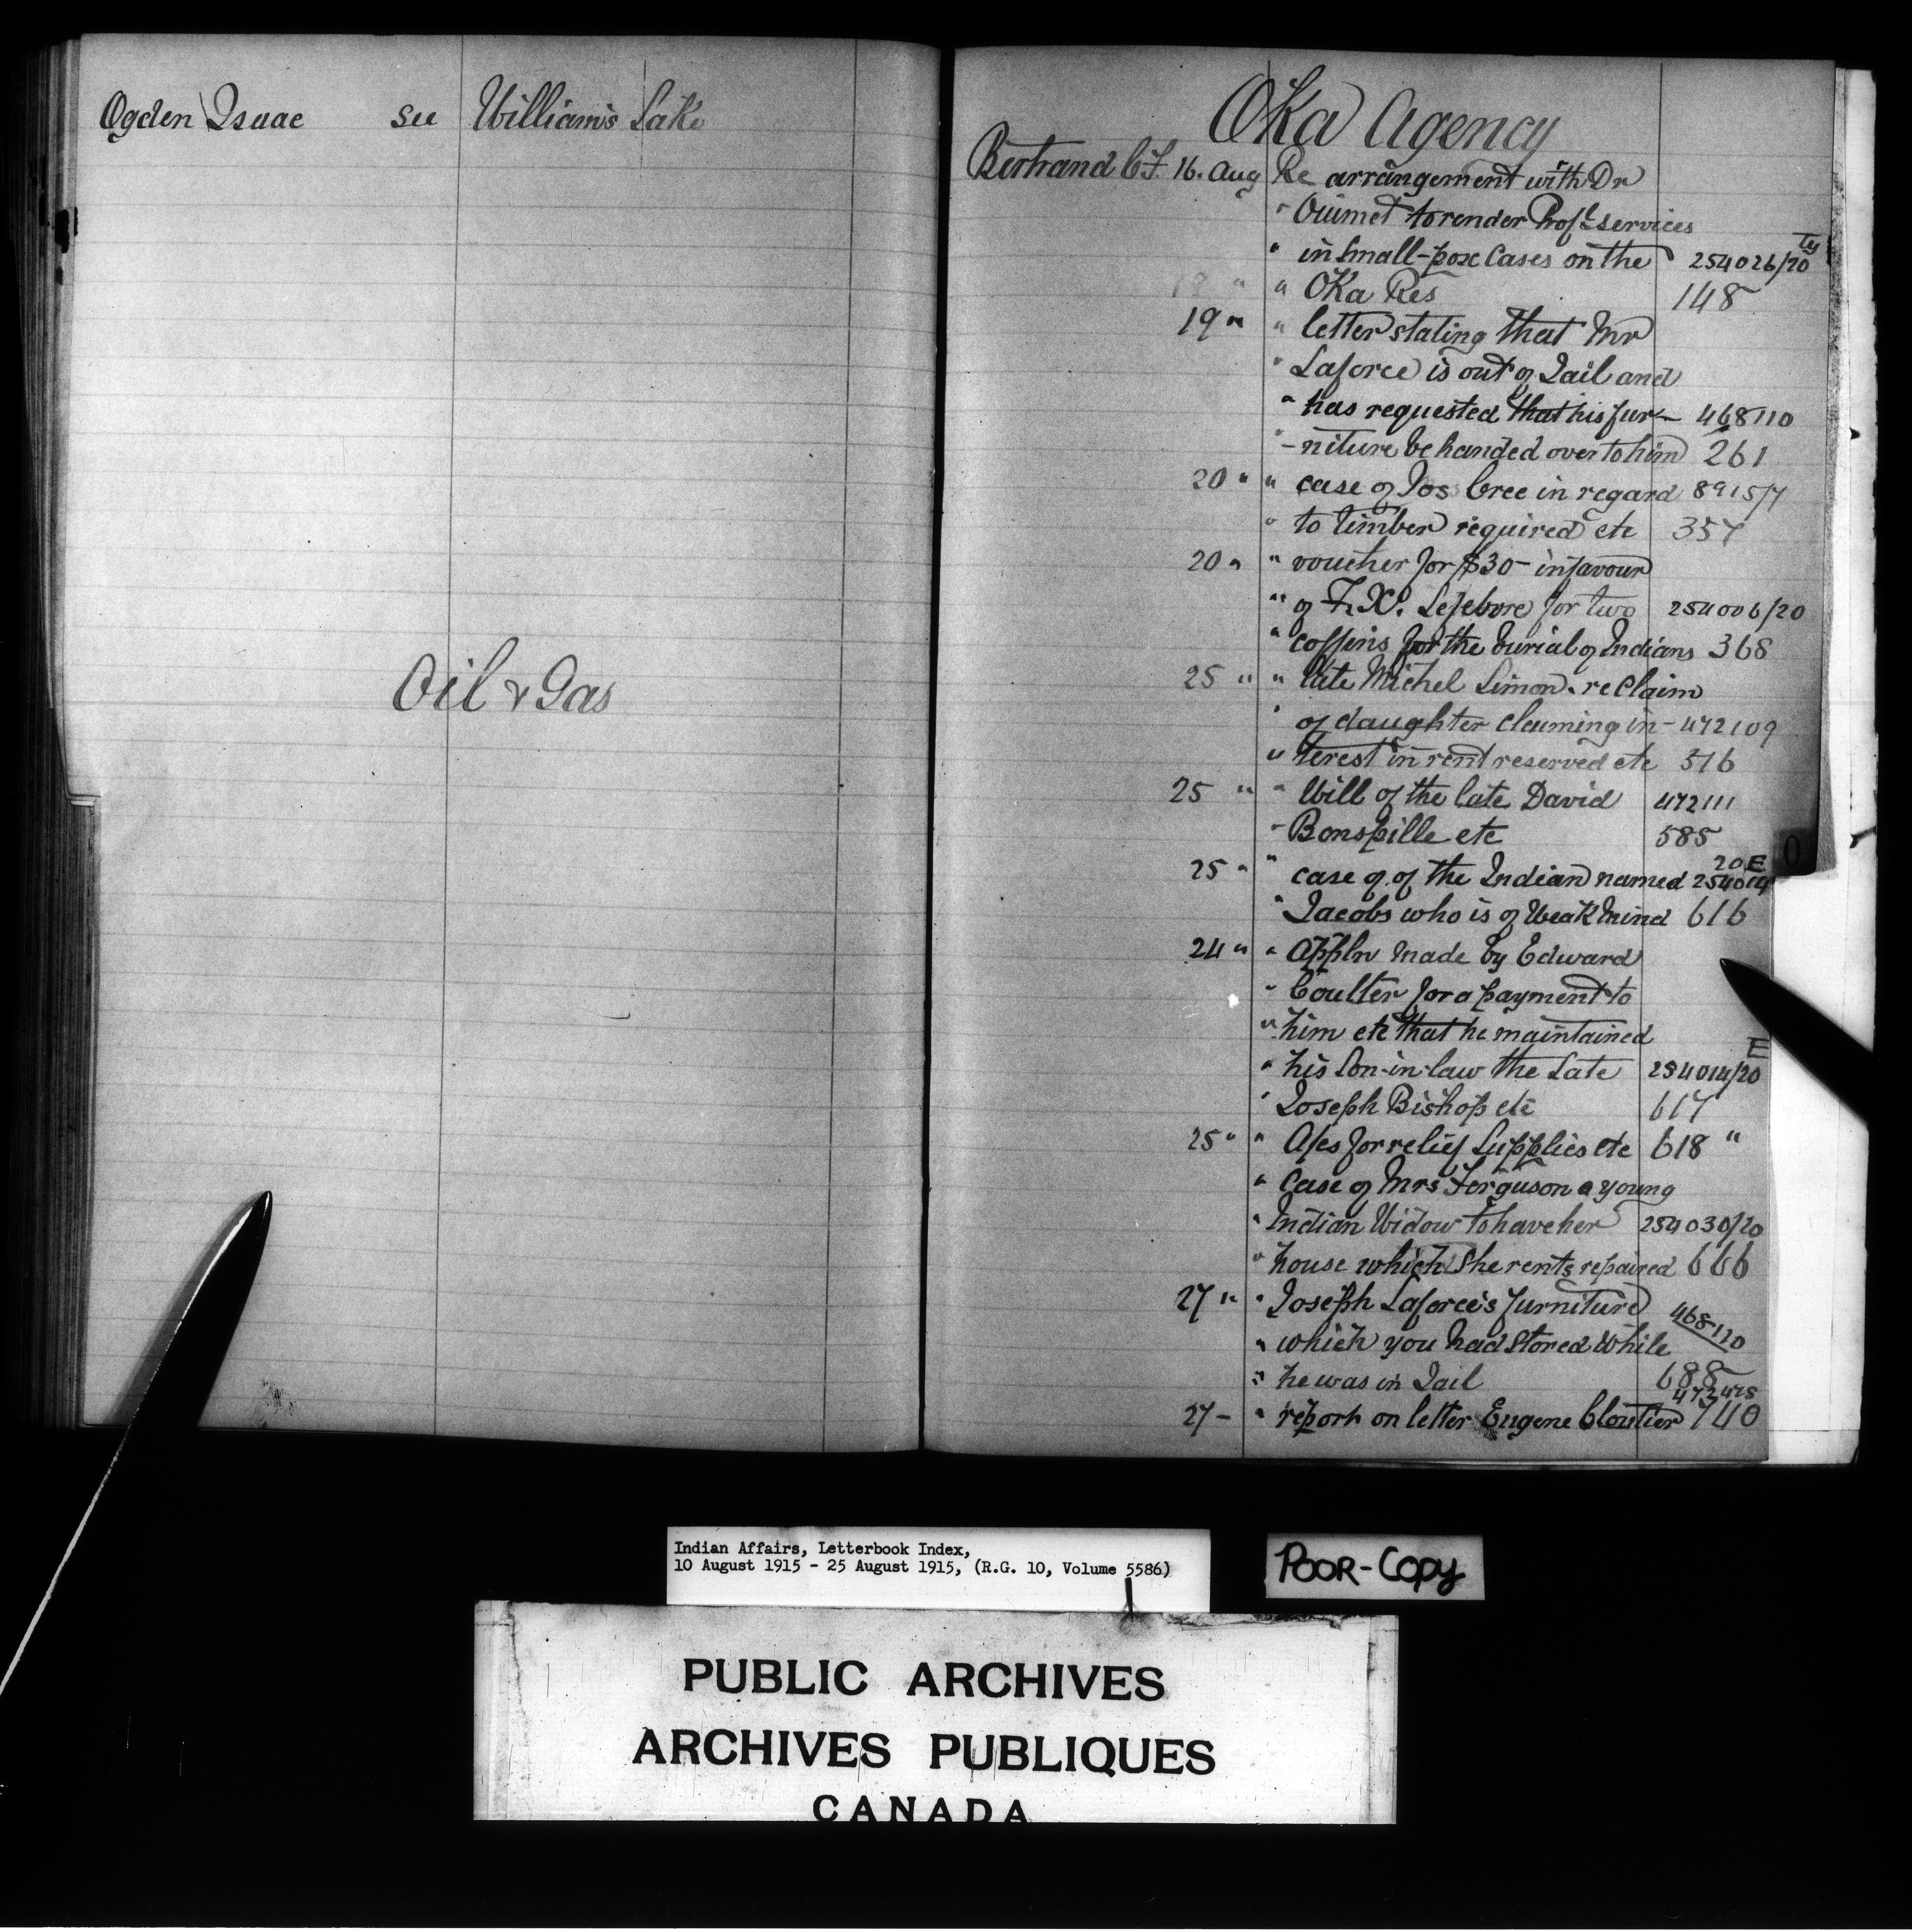 Ogden Isaac see Williams Lake
Oil & Gas
Oka Agency
Bertrand C.F. 16. Aug Re arrangement with Dr
" Ouimet to render Prof'l services
" in Small-pox Cases on the 254026/20 Ty
" Oka Res 148
19 " " letter stating that Mr
" Laforce is out of Jail and
" has requested that his fur- 468110
" -niture be handed over to him 261
20 " " case of Jos Cree in regard 8915/7
" to timber required etc 357
20 " " voucher for $30- in favour
" of F.X. Lefebvre for two 254006/20
" coffins for the burial of Indians 368
25 " " late Michel Simon. re claim
" of daughter claiming in- 472109
" terest in rent reserved etc 516
25 " " Will of the late David 472111
" Bonspille etc 585
20 E
25 " " case of of the Indian named 254014
" Jacobs who is of Weak Mind 616
24 " " Appln made by Edward
" Coulter for a payment to
" him etc that he maintained
E
" his Son-in-law the Late 254014/20
" Joseph Bishop etc 617
25 " " A/cs for relief Supplies etc 618 "
" Case of Mrs Ferguson a young
" Indian Widow to have her 254030/20
" house which She rents repaired 666
27 " " Joseph Laforce's furniture 468110
" which you had Stored While
" he was in Jail 688
472475
27 - " report on letter Eugene Cloutier 740
O
Indian Affairs, Letterbook Index,
10 August 1915 - 25 August 1915, (R.G. 10, Volume 5586)
POOR-COPY
PUBLIC ARCHIVES
ARCHIVES PUBLIQUES
CANADA